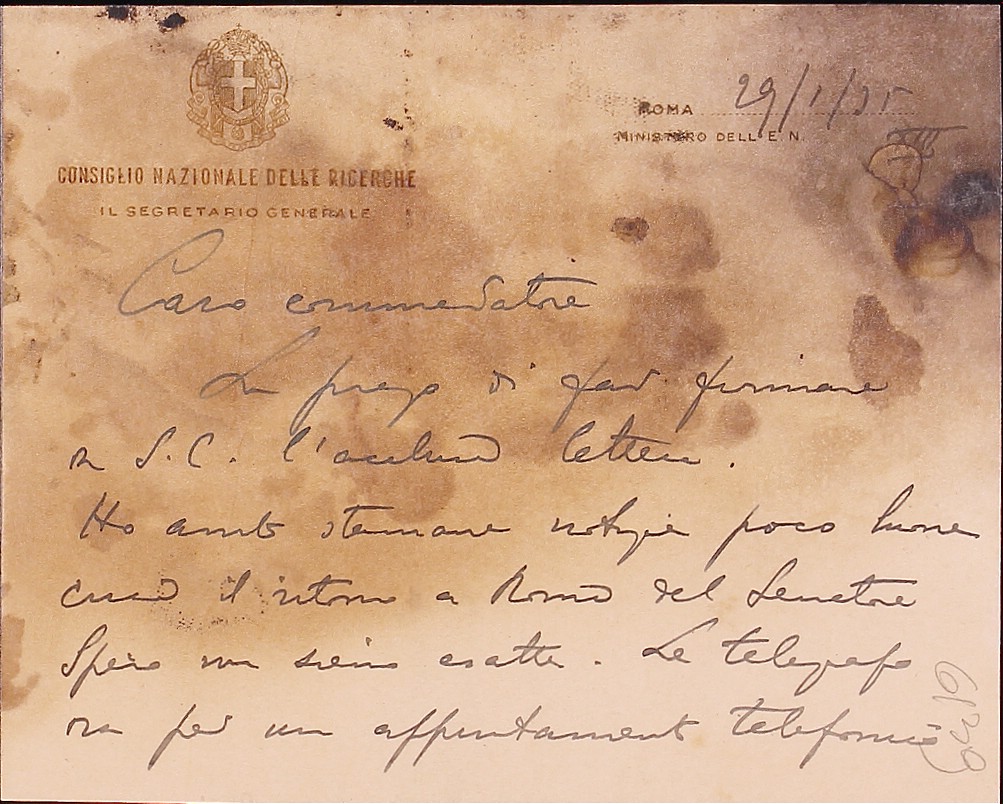 CONSIGLIO NAZIONALE DELLE RICERCHE
IL SEGRETARIO GENERALE
ROMA 29/1/35
MINISTERO DELL'E. N.
XIII
Caro commendatore
La prego di far firmare
a S.E. l'acclusa lettera.
Ho avuto stamane notizie poco buone
circa il ritorno a Roma del Senatore
Spero non siano esatte. Le telegrafo
ora per un appuntamento telefonico